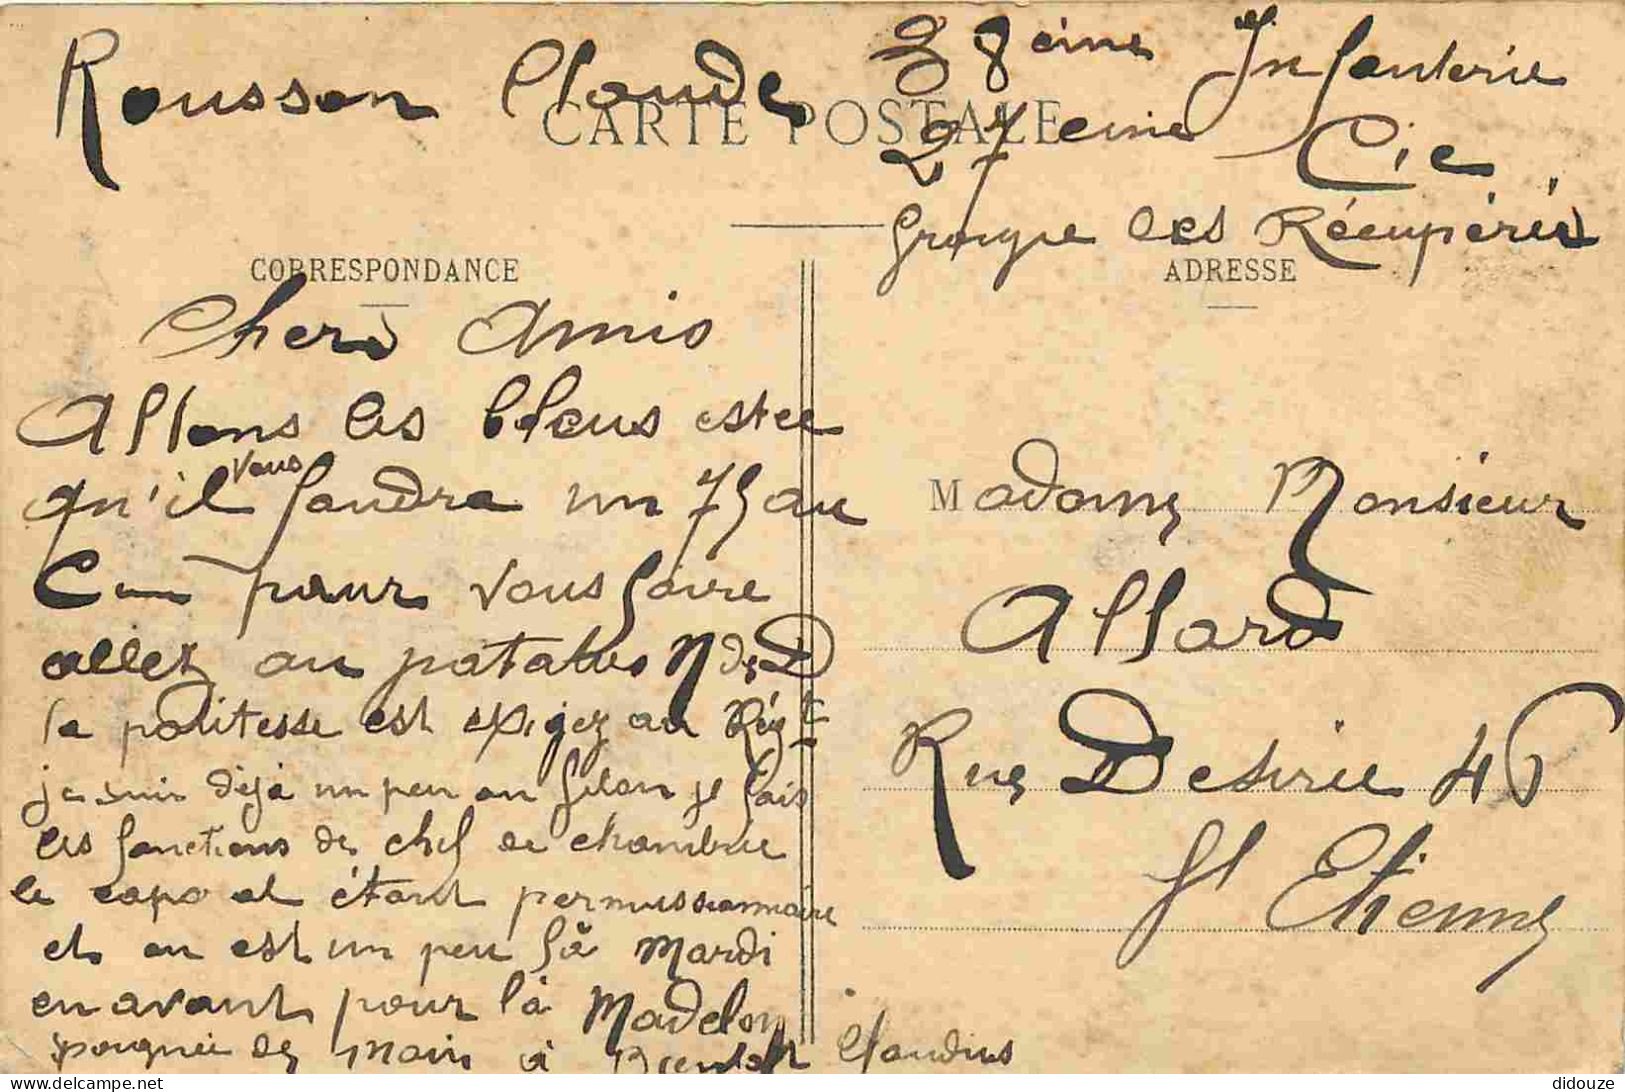 Rousson Claude
38eime Infanterie
27eme Cie
Groupe des Récupérés
CARTE POSTALE
CORRESPONDANCE
ADRESSE
Chers Amis
Allons les bleus estce
qu'il vous faudra un 75 au
C pour vous faire
allez au patatus N de D
la politesse est exigez au Régt
je suis déjà un peu au filon je fais
les fonctions de chef de chambrée
le capo al étant permissionnaire
et on est un peu là Mardi
en avant pour la Madelon
poignée de main à Bientôt Claudius
Madame Monsieur
Allard
Rue Desirée 46
St Etienne
delcampe.net
didouze